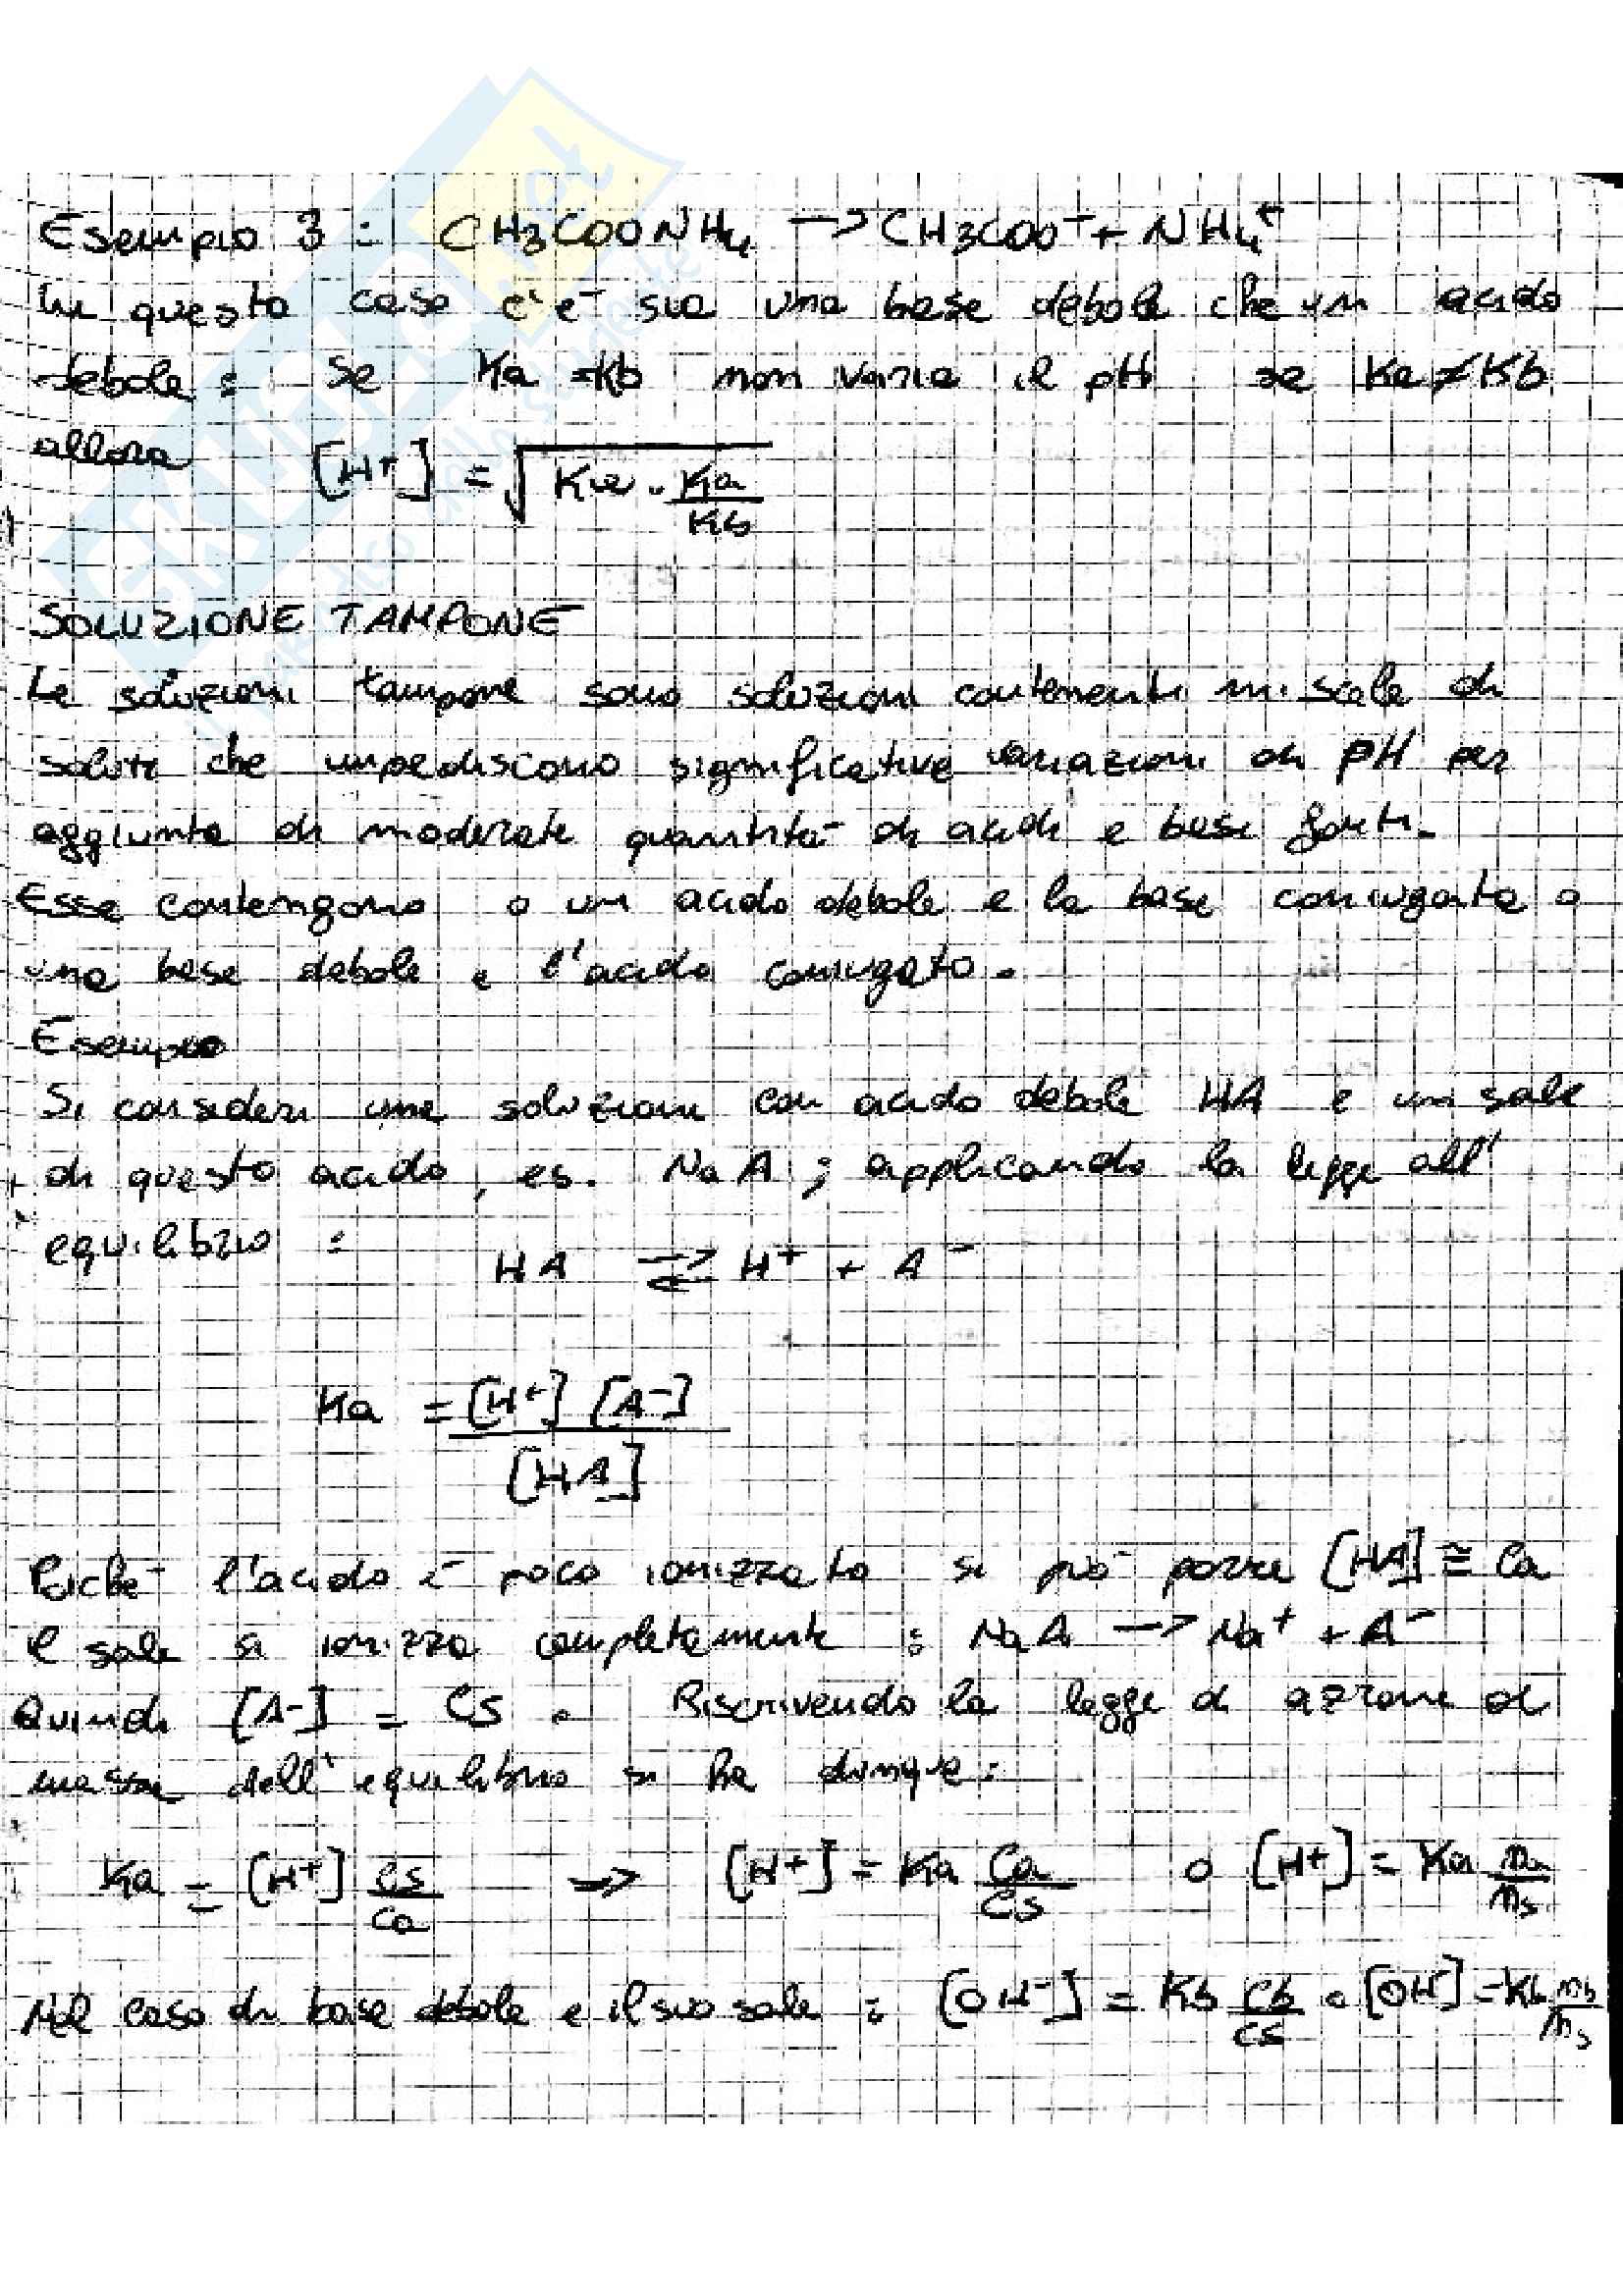 Esempio 3 : CH3COONH4 → CH3COO⁻ + NH4⁺
In questo caso c'è sia una base debole che un acido
debole : se Ka = Kb non varia il pH se Ka ≠ Kb
allora [H⁺] = √(Kw · Ka/Kb)
SOLUZIONE TAMPONE
Le soluzioni tampone sono soluzioni contenenti miscele di
soluti che impediscono significative variazioni di pH per
aggiunta di moderate quantità di acidi e basi forti.
Esse contengono o un acido debole e la base coniugata o
una base debole e l'acido coniugato.
Esempio
Si consideri una soluzione con acido debole HA e un sale
di questo acido, es. NaA ; applicando la legge all'
equilibrio :
HA ⇌ H⁺ + A⁻
Ka = [H⁺] [A⁻] / [HA]
Poiché l'acido è poco ionizzato si può porre [HA] ≅ Ca
il sale si ionizza completamente : NaA → Na⁺ + A⁻
Quindi [A⁻] = Cs . Riscrivendo la legge di azione di
massa dell'equilibrio si ha dunque :
Ka = [H⁺] Cs/Ca → [H⁺] = Ka Ca/Cs o [H⁺] = Ka na/ns
Nel caso di base debole e il suo sale : [OH⁻] = Kb Cb/Cs o [OH⁻] = Kb nb/ns
SKUOLA.net